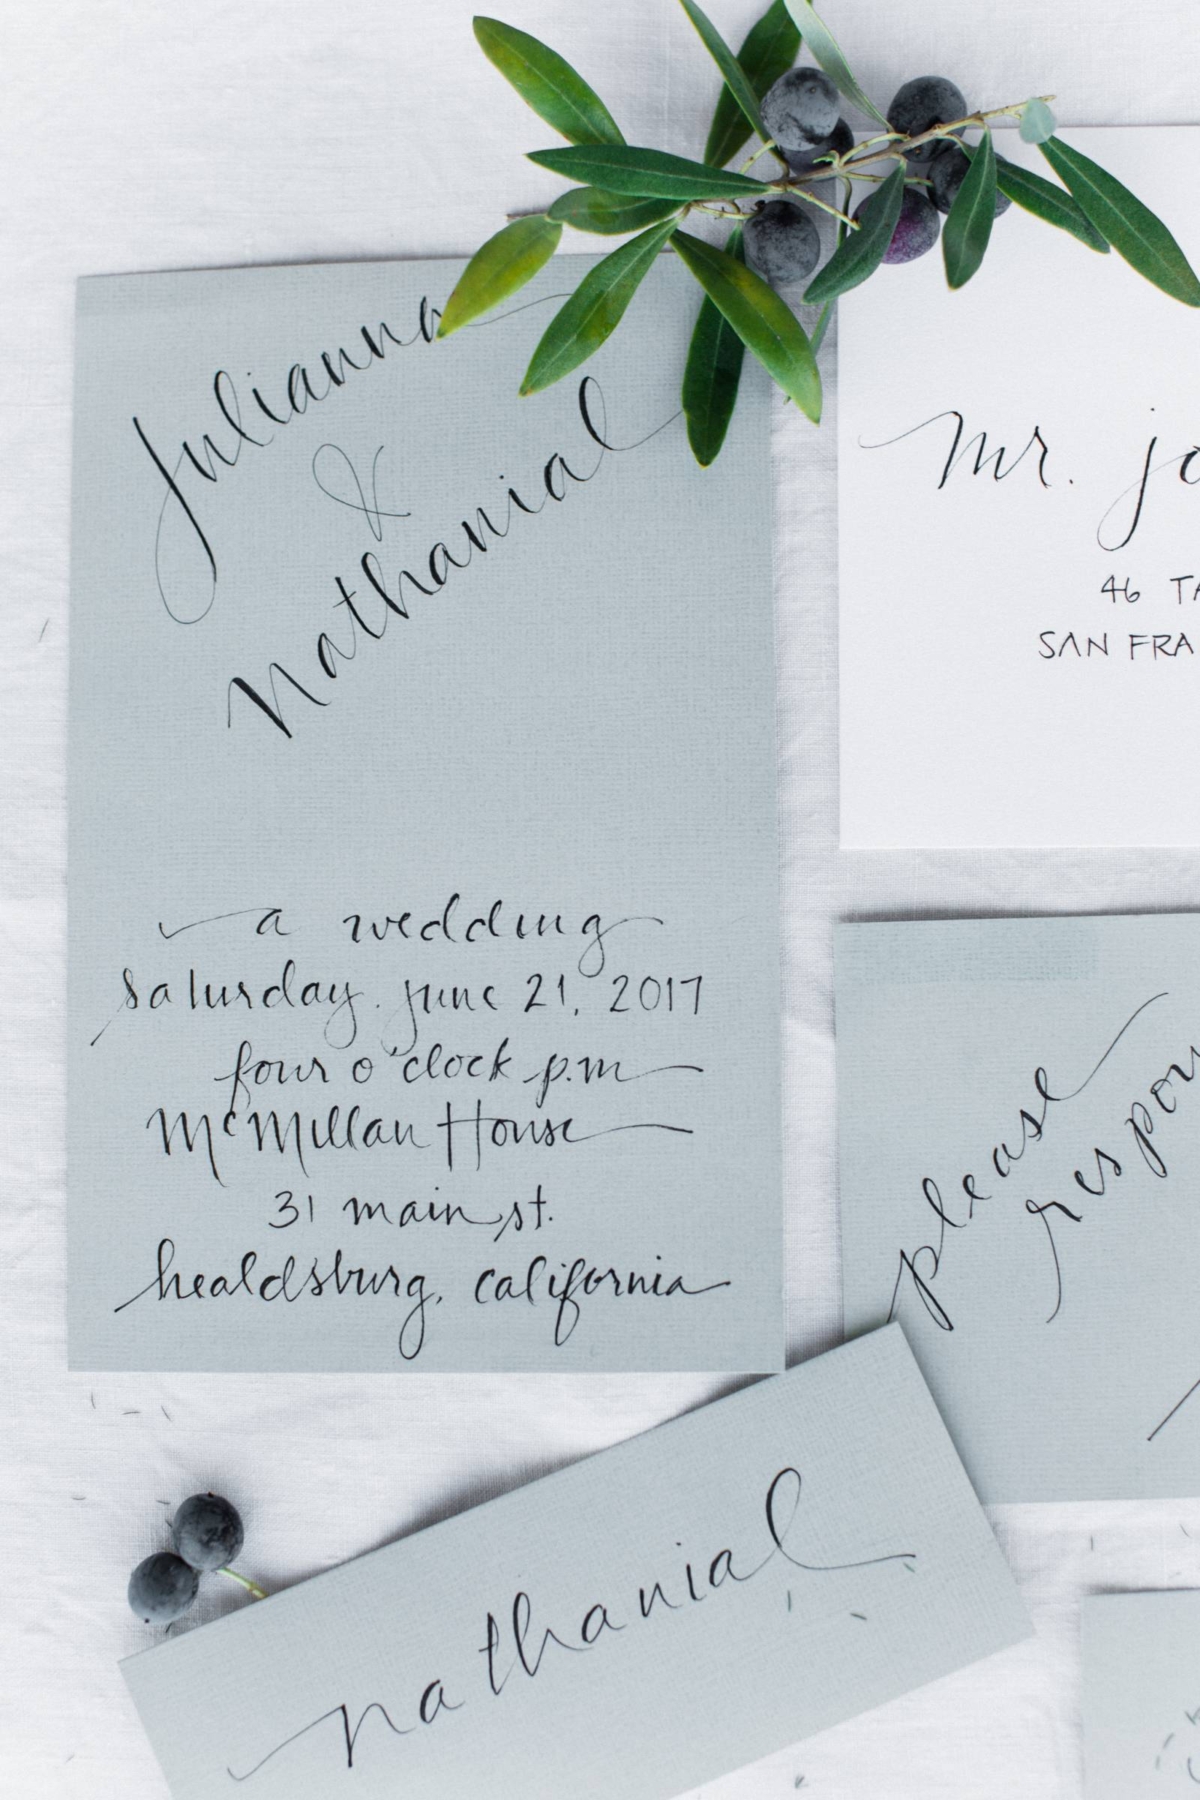 Julianna
&
nathanial
a wedding
saturday. june 21, 2017
four o'clock p.m
McMillan House
31 main st.
healdsburg, california
mr. jo
46 TA
SAN FRA
please
respon
nathanial